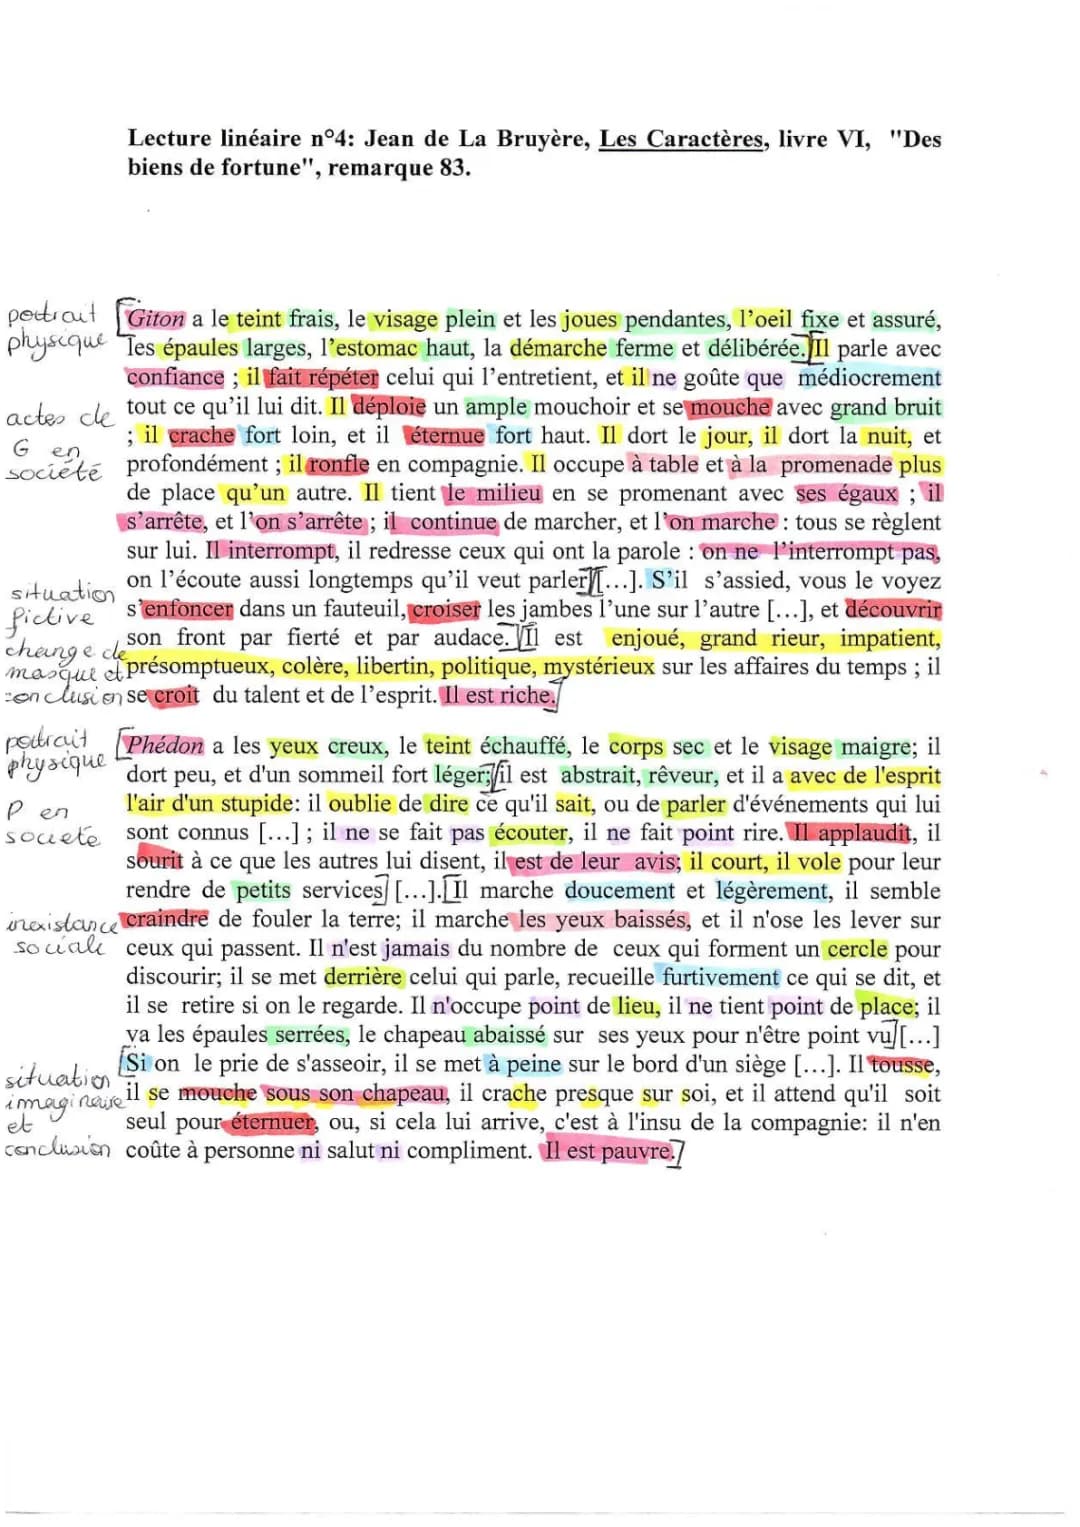 Lecture linéaire n°4: Jean de La Bruyère, Les Caractères, livre VI, "Des
biens de fortune", remarque 83.
portrait
physique
Giton a le teint frais, le visage plein et les joues pendantes, l'oeil fixe et assuré,
les épaules larges, l'estomac haut, la démarche ferme et délibérée. Il parle avec
confiance ; il fait répéter celui qui l'entretient, et il ne goûte que médiocrement
actes de
G en
société
tout ce qu'il lui dit. Il déploie un ample mouchoir et se mouche avec grand bruit
; il crache fort loin, et il éternue fort haut. Il dort le jour, il dort la nuit, et
profondément ; il ronfle en compagnie. Il occupe à table et à la promenade plus
de place qu'un autre. Il tient le milieu en se promenant avec ses égaux ; il
s'arrête, et l'on s'arrête ; il continue de marcher, et l'on marche : tous se règlent
sur lui. Il interrompt, il redresse ceux qui ont la parole : on ne l'interrompt pas,
on l'écoute aussi longtemps qu'il veut parler [...]. S'il s'assied, vous le voyez
situation
fictive
s'enfoncer dans un fauteuil, croiser les jambes l'une sur l'autre [...], et découvrir
son front par fierté et par audace. Il est enjoué, grand rieur, impatient,
change de
masque et
conclusion
présomptueux, colère, libertin, politique, mystérieux sur les affaires du temps ; il
se croit du talent et de l'esprit. Il est riche.
portrait
physique
Phédon a les yeux creux, le teint échauffé, le corps sec et le visage maigre; il
dort peu, et d'un sommeil fort léger; il est abstrait, rêveur, et il a avec de l'esprit
P en
societe
l'air d'un stupide: il oublie de dire ce qu'il sait, ou de parler d'événements qui lui
sont connus [...] ; il ne se fait pas écouter, il ne fait point rire. Il applaudit, il
sourit à ce que les autres lui disent, il est de leur avis; il court, il vole pour leur
rendre de petits services [...]. Il marche doucement et légèrement, il semble
inexistance
sociale
craindre de fouler la terre; il marche les yeux baissés, et il n'ose les lever sur
ceux qui passent. Il n'est jamais du nombre de ceux qui forment un cercle pour
discourir; il se met derrière celui qui parle, recueille furtivement ce qui se dit, et
il se retire si on le regarde. Il n'occupe point de lieu, il ne tient point de place; il
va les épaules serrées, le chapeau abaissé sur ses yeux pour n'être point vu [...]
situation
imaginaire
et
conclusion
Si on le prie de s'asseoir, il se met à peine sur le bord d'un siège [...]. Il tousse,
il se mouche sous son chapeau, il crache presque sur soi, et il attend qu'il soit
seul pour éternuer, ou, si cela lui arrive, c'est à l'insu de la compagnie: il n'en
coûte à personne ni salut ni compliment. Il est pauvre.